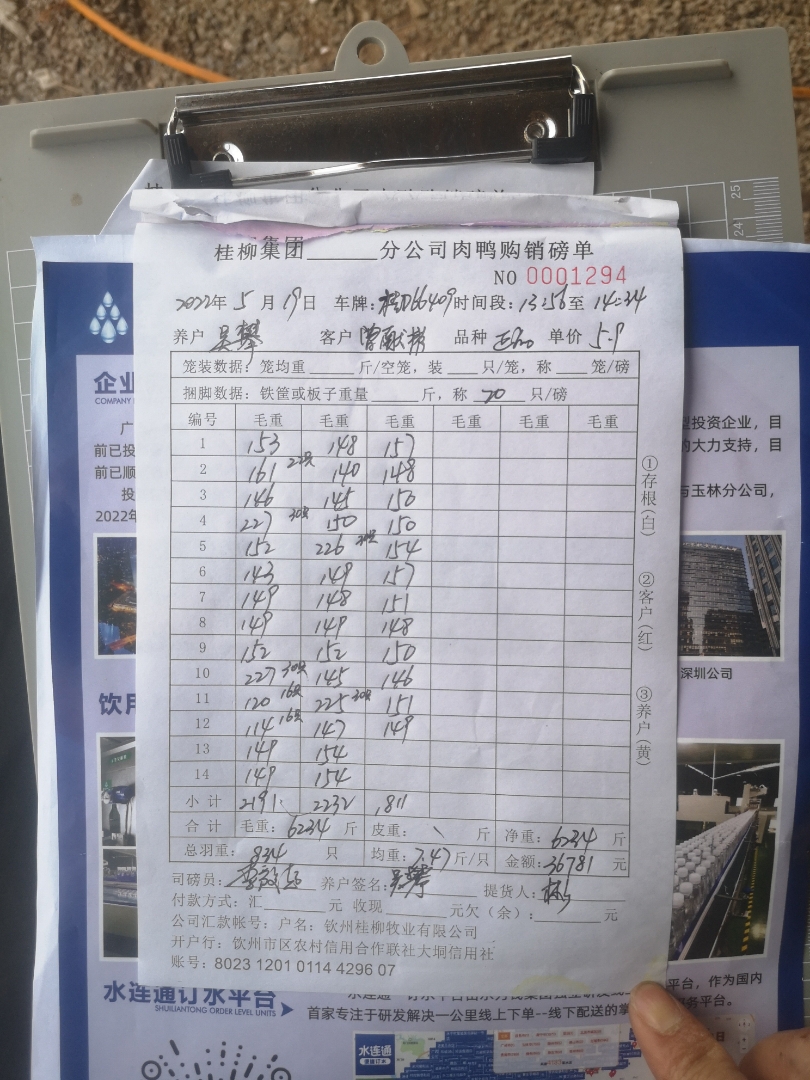 桂柳集团______分公司肉鸭购销磅单
NO 0001294
2022年 5 月 19日 车牌: 桂D66409 时间段: 13:56至 14:34
养户 吴攀 客户 品种 单价 5.9
笼装数据: 笼均重______斤/空笼, 装___只/笼, 称___笼/磅
捆脚数据: 铁筐或板子重量______斤, 称 20 只/磅
编号 毛重 毛重 毛重 毛重 毛重 毛重
1 153 148 157
2 161 22只 140 148
3 146 145 150
4 227 30只 150 150
5 152 226 30只 154
6 143 149 157
7 149 148 151
8 149 149 148
9 152 152 150
10 227 30只 145 146
11 120 16只 225 30只 151
12 114 16只 147 149
13 149 154
14 149 154
小 计 2191 2232 1811
合 计 毛重: 6234 斤 皮重: \ 斤 净重: 6234 斤
总羽重: 834 只 均重: 7.47 斤/只 金额: 36781 元
司磅员: 养户签名: 吴攀 提货人:
付款方式: 汇______元 收现______元欠(余): ______元
公司汇款帐号: 户名: 钦州桂柳牧业有限公司
开户行: 钦州市区农村信用合作联社大垌信用社
账号: 8023 1201 0114 4296 07
①存根(白)
②客户(红)
③养户(黄)
25
24
企业
COMPANY
广
前已投
前已顺
投
2022年
型投资企业,目
的大力支持,目
与玉林分公司,
深圳公司
饮用
水连通订水平台
SHUILIANTONG ORDER LEVEL UNITS
平台,作为国内
首家专注于研发解决一公里线上下单--线下配送的掌
务平台。
水连通